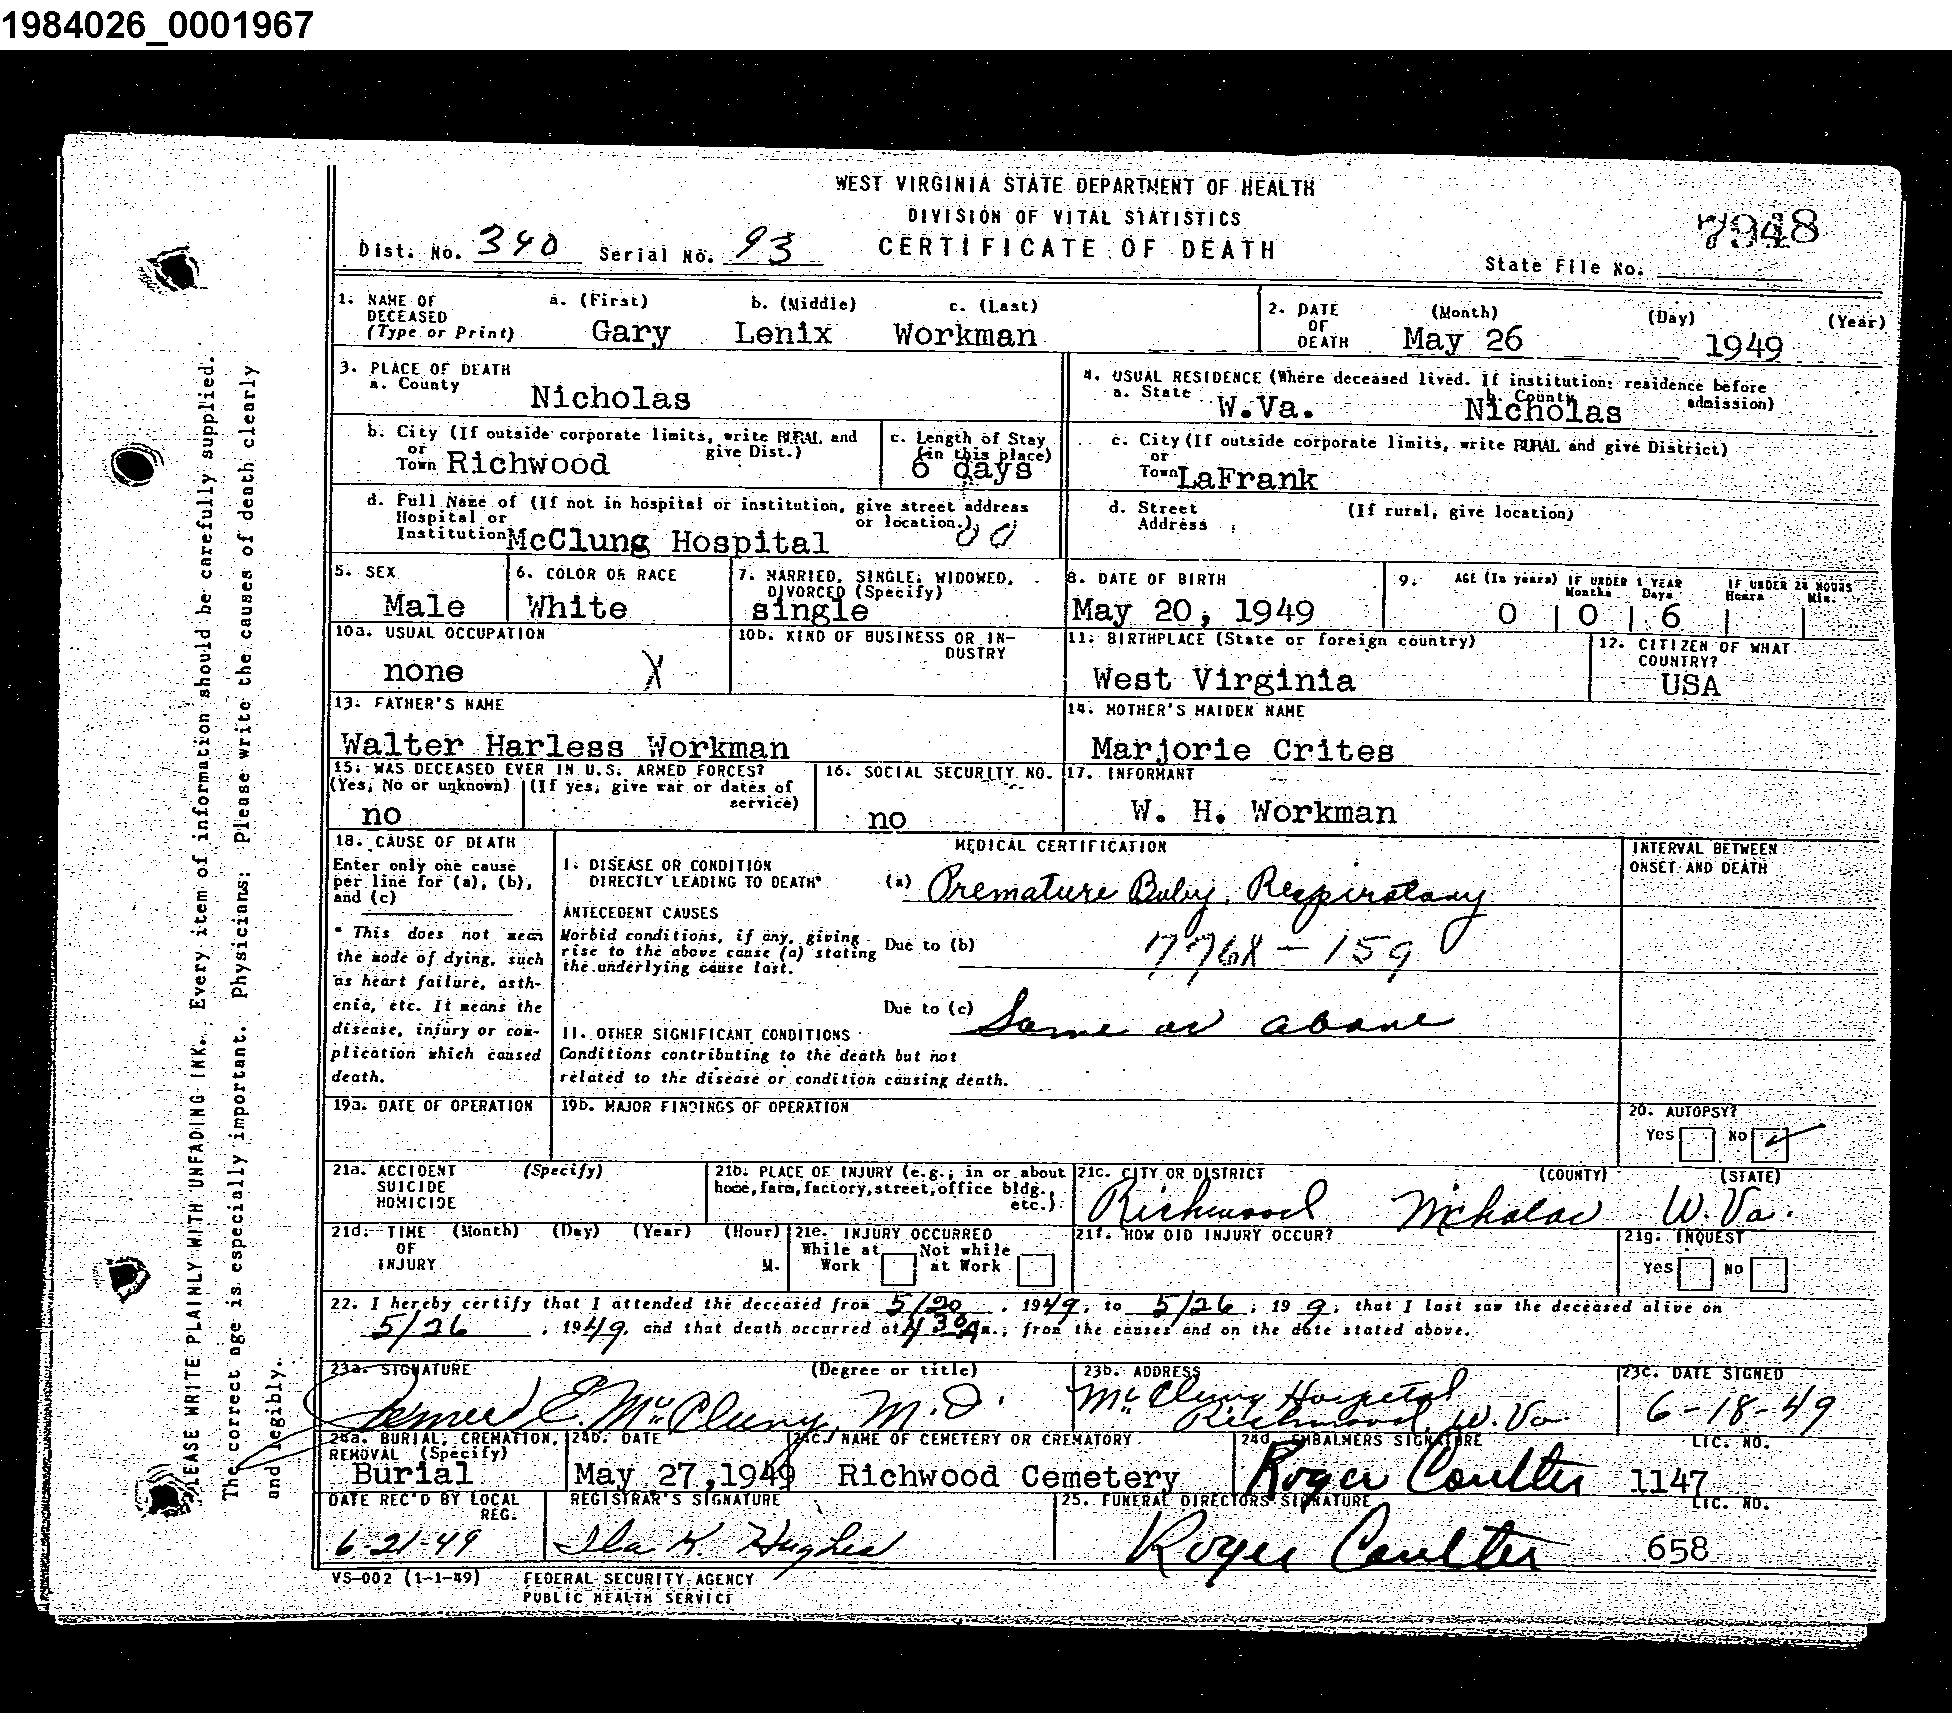 1984026_0001967
WEST VIRGINIA STATE DEPARTMENT OF HEALTH
DIVISION OF VITAL STATISTICS
CERTIFICATE OF DEATH
Dist. No. 340 Serial No. 93
7948
State File No.
1. NAME OF DECEASED (Type or Print)
a. (First) b. (Middle) c. (Last)
Gary Lenix Workman
2. DATE OF DEATH (Month) (Day) (Year)
May 26 1949
3. PLACE OF DEATH
a. County Nicholas
4. USUAL RESIDENCE (Where deceased lived. If institution: residence before admission)
a. State W.Va. b. County Nicholas
b. City (If outside corporate limits, write RURAL and give Dist.)
or Town Richwood
c. Length of Stay (in this place)
6 days
c. City (If outside corporate limits, write RURAL and give District)
or Town LaFrank
d. Full Name of (If not in hospital or institution, give street address or location.)
Hospital or Institution McClung Hospital
d. Street Address (If rural, give location)
5. SEX
Male
6. COLOR OR RACE
White
7. MARRIED, SINGLE, WIDOWED, DIVORCED (Specify)
single
8. DATE OF BIRTH
May 20, 1949
9. AGE (In years) IF UNDER 1 YEAR Months Days IF UNDER 24 HOURS Hours Min.
0 0 6
10a. USUAL OCCUPATION
none X
10b. KIND OF BUSINESS OR INDUSTRY
11. BIRTHPLACE (State or foreign country)
West Virginia
12. CITIZEN OF WHAT COUNTRY?
USA
13. FATHER'S NAME
Walter Harless Workman
14. MOTHER'S MAIDEN NAME
Marjorie Crites
15. WAS DECEASED EVER IN U.S. ARMED FORCES?
(Yes, No or unknown) (If yes, give war or dates of service)
no
16. SOCIAL SECURITY NO.
no
17. INFORMANT
W. H. Workman
18. CAUSE OF DEATH
Enter only one cause per line for (a), (b), and (c)
* This does not mean the mode of dying, such as heart failure, asthenia, etc. It means the disease, injury or complication which caused death.
MEDICAL CERTIFICATION
INTERVAL BETWEEN ONSET AND DEATH
I. DISEASE OR CONDITION DIRECTLY LEADING TO DEATH*
(a) Premature Baby, Respiratory
ANTECEDENT CAUSES
Morbid conditions, if any, giving rise to the above cause (a) stating the underlying cause last.
Due to (b) 776X - 159
Due to (c) Same as above
II. OTHER SIGNIFICANT CONDITIONS
Conditions contributing to the death but not related to the disease or condition causing death.
19a. DATE OF OPERATION
19b. MAJOR FINDINGS OF OPERATION
20. AUTOPSY?
Yes No
21a. ACCIDENT SUICIDE HOMICIDE (Specify)
21b. PLACE OF INJURY (e.g., in or about home, farm, factory, street, office bldg., etc.)
21c. CITY OR DISTRICT (COUNTY) (STATE)
Richwood Nicholas W. Va.
21d. TIME OF INJURY (Month) (Day) (Year) (Hour) M.
21e. INJURY OCCURRED
While at Work Not while at Work
21f. HOW DID INJURY OCCUR?
21g. INQUEST
Yes No
22. I hereby certify that I attended the deceased from 5/20, 1949, to 5/26, 19 9, that I last saw the deceased alive on
5/26, 1949, and that death occurred at 4 30 A m., from the causes and on the date stated above.
23a. SIGNATURE (Degree or title)
E. McClung, M.D.
23b. ADDRESS
McClung Hospital
Richwood, W. Va.
23c. DATE SIGNED
6-18-49
24a. BURIAL, CREMATION, REMOVAL (Specify)
Burial
24b. DATE
May 27, 1949
24c. NAME OF CEMETERY OR CREMATORY
Richwood Cemetery
24d. EMBALMERS SIGNATURE LIC. NO.
Roger Coulter 1147
DATE REC'D BY LOCAL REG.
6-21-49
REGISTRAR'S SIGNATURE
Ila K Hughes
25. FUNERAL DIRECTORS SIGNATURE LIC. NO.
Roger Coulter 658
VS-002 (1-1-49) FEDERAL SECURITY AGENCY
PUBLIC HEALTH SERVICE
PLEASE WRITE PLAINLY WITH UNFADING INK. Every item of information should be carefully supplied.
The correct age is especially important. Physicians: Please write the causes of death clearly
and legibly.